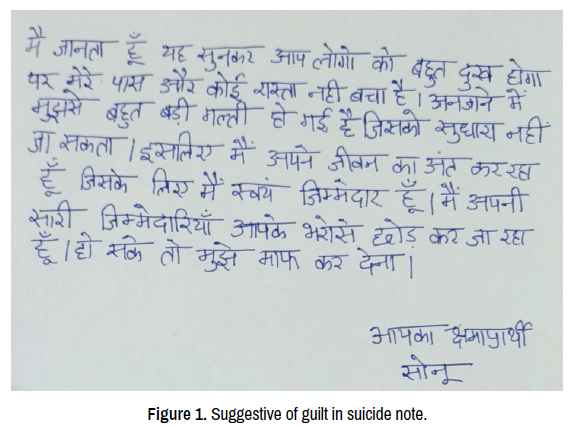 मै जानता हूँ यह सुनकर आप लोगो को बहुत दुख होगा
पर मेरे पास और कोई रास्ता नही बचा है। अनजाने में
मुझसे बहुत बड़ी गल्ती हो गई है जिसको सुधारा नहीं
जा सकता। इसलिए मैं अपने जीवन का अंत कर रहा
हूँ जिसके लिए मैं स्वयं जिम्मेदार हूँ। मैं अपनी
सारी जिम्मेदारियाँ आपके भरोसे छोड़ कर जा रहा
हूँ। हो सके तो मुझे माफ कर देना।
आपका क्षमाप्रार्थी
सोनू
Figure 1. Suggestive of guilt in suicide note.